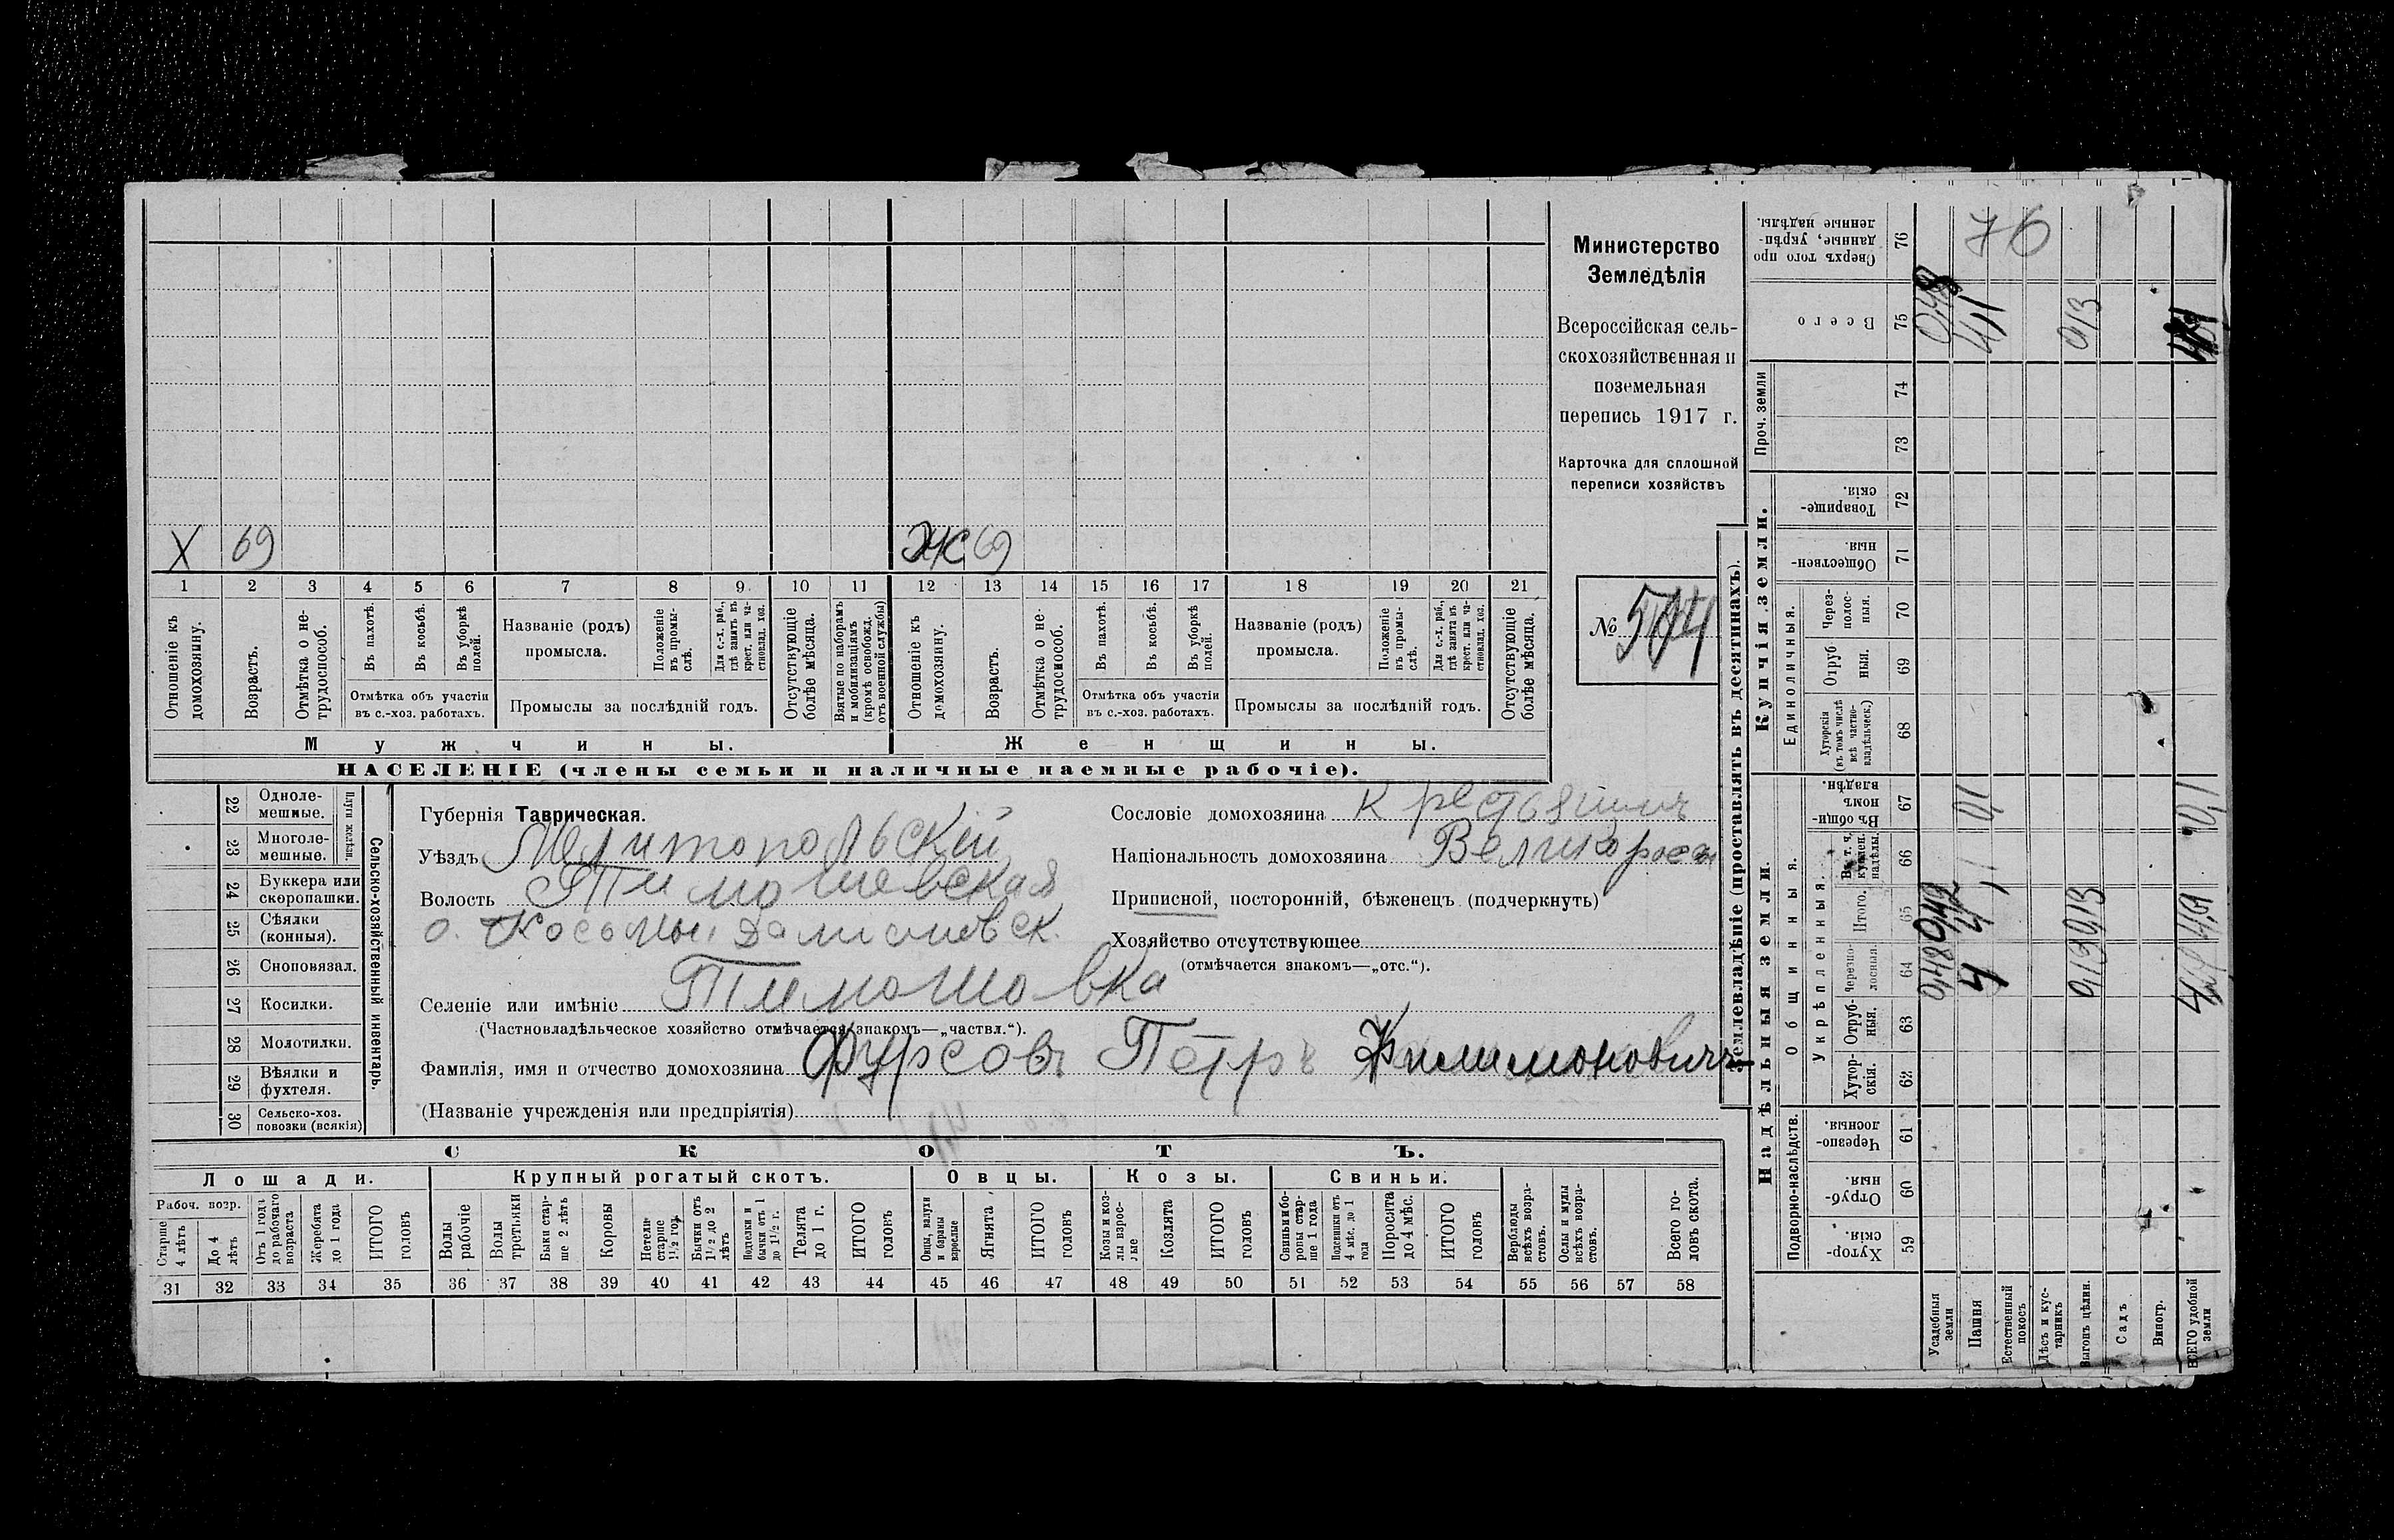 Министерство
Земледѣлія
Всероссійская сель-
скохозяйственная и
поземельная
перепись 1917 г.
Карточка для сплошной
переписи хозяйствъ
№ 504
X 69
Ж 69
1 2 3 4 5 6 7 8 9 10 11 12 13 14 15 16 17 18 19 20 21
Отношеніе къ домохозяину.
Возрастъ.
Отмѣтка о не-трудоспособ.
Въ пахотѣ.
Въ косьбѣ.
Въ уборкѣ полей.
Отмѣтка объ участіи
въ с.-хоз. работахъ.
Названіе (родъ)
промысла.
Положеніе въ промы-слѣ.
Для с.-х. раб., гдѣ занятъ въ крест. или ча-стновлад. хоз.
Промыслы за послѣдній годъ.
Отсутствующіе болѣе мѣсяца.
Взятые по наборамъ и мобилизаціямъ (кромѣ освобожд. отъ военной службы)
Отношеніе къ домохозяину.
Возрастъ.
Отмѣтка о не-трудоспособ.
Въ пахотѣ.
Въ косьбѣ.
Въ уборкѣ полей.
Отмѣтка объ участіи
въ с.-хоз. работахъ.
Названіе (родъ)
промысла.
Положеніе въ промы-слѣ.
Для с.-х. раб., гдѣ занята въ крест. или ча-стновлад. хоз.
Промыслы за послѣдній годъ.
Отсутствующіе болѣе мѣсяца.
Мужчины.
Женщины.
НАСЕЛЕНІЕ (члены семьи и наличные наемные рабочіе).
22 Одноле-мешные.
23 Многоле-мешные.
Плуги желѣзн.
24 Буккера или скоропашки.
25 Сѣялки (конныя).
26 Сноповязал.
27 Косилки.
28 Молотилки.
29 Вѣялки и фухтеля.
30 Сельско-хоз. повозки (всякія)
Сельско-хозяйственный инвентарь.
Губернія Таврическая.
Уѣздъ Мелитопольскій
Волость Тимошевская
о. Косьмы. Даміановск.
Селеніе или имѣніе Тимошовка
(Частновладѣльческое хозяйство отмѣчается знакомъ—„частвл.“).
Фамилія, имя и отчество домохозяина Фурсовъ Петръ Филимоновичъ
(Названіе учрежденія или предпріятія)
Сословіе домохозяина Крестьянинъ
Національность домохозяина Великоросъ
Приписной, посторонній, бѣженецъ (подчеркнуть)
Хозяйство отсутствующее
(отмѣчается знакомъ—„отс.“).
СКОТЪ.
Лошади.
Крупный рогатый скотъ.
Овцы.
Козы.
Свиньи.
Рабоч. возр.
Старше 4 лѣтъ
До 4 лѣтъ
Отъ 1 года до рабочаго возраста
Жеребята до 1 года
ИТОГО головъ
Волы рабочіе
Волы третьяки
Быки стар-ше 2 лѣтъ
Коровы
Нетели старше 1½ год.
Бычки отъ 1½ до 2 лѣтъ
Подтелки и бычки отъ 1 до 1½ г.
Телята до 1 г.
ИТОГО головъ
Овцы, валухи и бараны взрослые
Ягнята
ИТОГО головъ
Козы и коз-лы взрос-лые
Козлята
ИТОГО головъ
Свиньи и бо-ровы стар-ше 1 года
Подсвинки отъ 4 мѣс. до 1 года
Поросята до 4 мѣс.
ИТОГО головъ
Верблюды всѣхъ возра-стовъ.
Ослы и мулы всѣхъ возра-стовъ.
Всего го-ловъ скота.
31 32 33 34 35 36 37 38 39 40 41 42 43 44 45 46 47 48 49 50 51 52 53 54 55 56 57 58
Землевладѣніе (проставлять въ десятинахъ).
Надѣльныя земли.
Купчія земли.
Проч. земли
Подворно-наслѣдств.
Общинныя.
Укрѣпленныя.
Единоличныя.
Хутор-скія. 59
Отруб-ныя. 60
Черезпо-лосныя. 61
Хутор-скія. 62
Отруб-ныя. 63
Черезпо-лосныя. 64
Итого. 65
Въ т. ч. куплен. надѣлы. 66
Въ общи-номъ владѣн. 67
Хуторскія (въ томъ числѣ всѣ частно-владѣльческ.) 68
Отруб-ныя. 69
Через-полос-ныя. 70
Обществен-ныя. 71
Товарище-скія. 72
73
74
Всего 75
Сверхъ того про-данные, укрѣп-ленные надѣлы. 76
Усадебныя земли 0,48
Пашня 4 0,1 4,1 76
Естественный покосъ
Лѣсъ и кус-тарникъ
Выгонъ цѣлин. 0,13 0,13 0,13
Садъ
Виногр.
ВСЕГО удобной земли 0,1